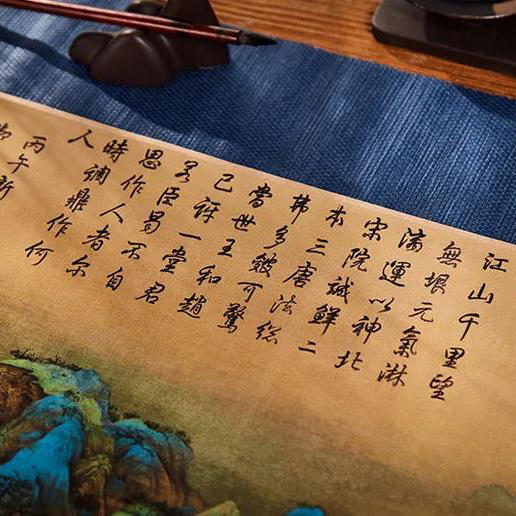 江山千里望
無垠元氣淋
漓運以神北
宋院誠鮮二
本三唐法總
弗多皴可驚
當世王和趙
已訝一堂君
若臣曷不自
思作人者尔
時調鼎作何
人
丙午新
御